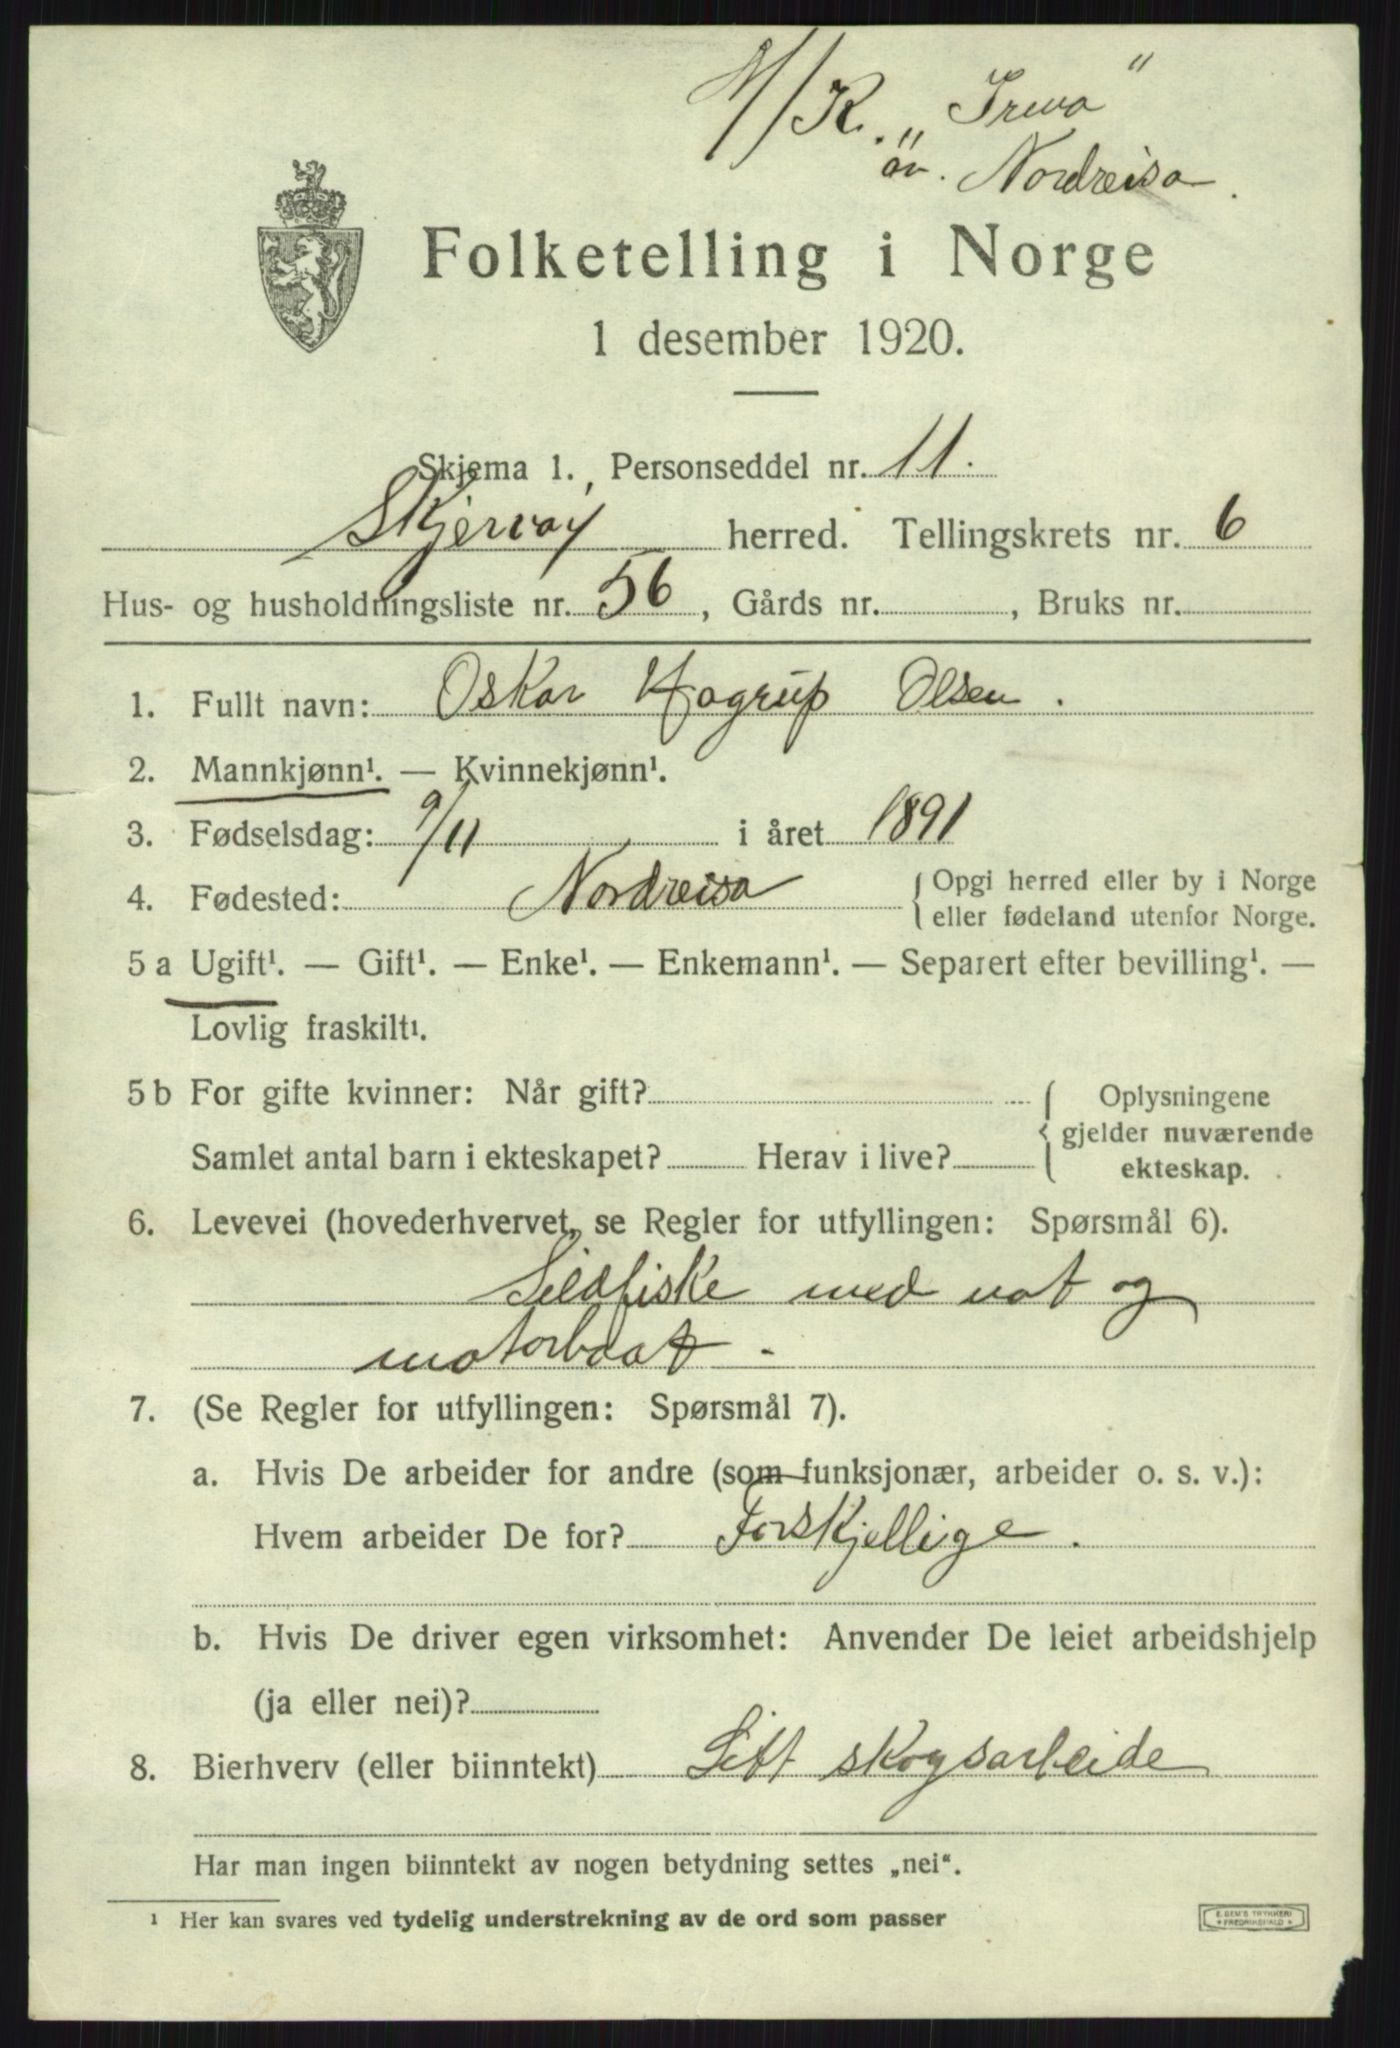 M/K. „Irma"
av. Nordreisa.
Folketelling i Norge
1 desember 1920.
Skjema 1. Personseddel nr. 11.
Skjervøy herred. Tellingskrets nr. 6
Hus- og husholdningsliste nr. 56, Gårds nr. , Bruks nr.
1. Fullt navn: Oskar Hagrup Olsen.
2. Mannkjønn¹. — Kvinnekjønn¹.
3. Fødselsdag: 9/11 i året 1891
4. Fødested: Nordreisa { Opgi herred eller by i Norge
eller fødeland utenfor Norge.
5 a Ugift¹. — Gift¹. — Enke¹. — Enkemann¹. — Separert efter bevilling¹. —
Lovlig fraskilt¹.
5 b For gifte kvinner: Når gift? { Oplysningene
gjelder nuværende
Samlet antal barn i ekteskapet? Herav i live?
ekteskap.
6. Levevei (hovederhvervet, se Regler for utfyllingen: Spørsmål 6).
Sildfiske med not og
motorbaat -
7. (Se Regler for utfyllingen: Spørsmål 7).
a. Hvis De arbeider for andre (som funksjonær, arbeider o. s. v.):
Hvem arbeider De for? Forskjellige.
b. Hvis De driver egen virksomhet: Anvender De leiet arbeidshjelp
(ja eller nei)?
8. Bierhverv (eller biinntekt) Litt skogsarbeide
Har man ingen biinntekt av nogen betydning settes „nei".
¹ Her kan svares ved tydelig understrekning av de ord som passer
E. SEM'S TRYKKERI
FREDRIKSHALD